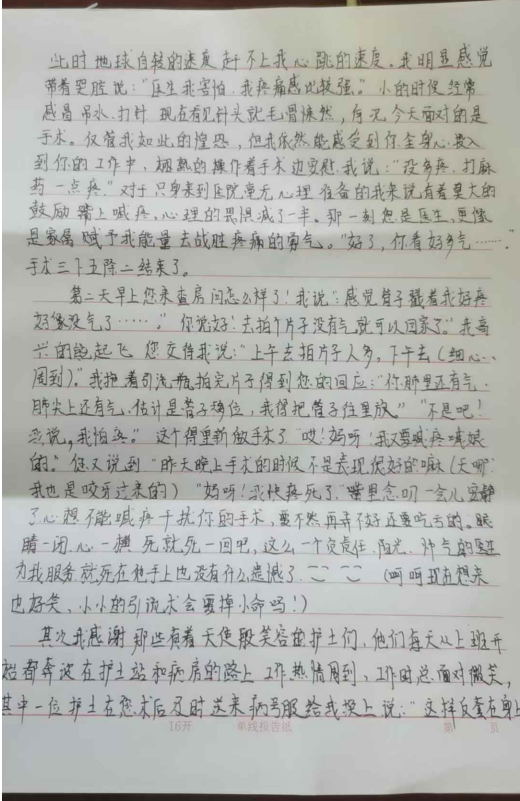 此时地球自转的速度赶不上我心跳的速度。我明显感觉
带着哭腔说:"医生我害怕,我疼痛感比较强。"小的时候经常
感冒吊水、打针 现在看见针头就毛骨悚然,何况今天面对的是
手术。仅管我如此的惶恐,但我依然能感受到你全身心投入
到你的工作中,娴熟的操作着手术边安慰我说:"没多疼,打麻
药一点疼。"对于只身来到医院毫无心理准备的我来说有着莫大的
鼓励 嘴上喊疼,心理的畏惧减了一半。那一刻您是医生,更像
是家属 赋予我能量去战胜疼痛的勇气。"好了,你看好多气……。"
手术三下五除二结束了。
第二天早上您来查房问怎么样了!我说:"感觉管子戳着我好疼
好像没气了……。"你说好!去拍个片子没有气就可以回家了。"我高
兴的能起飞 您交待我说:"上午去拍片子人多,下午去(细心、
周到)。"我抱着引流瓶拍完片子得到您的回应:"你肺里还有气,
肺尖上还有气,估计是管子移位,我得把管子往里放。""不是吧!
我说,我怕疼。"这个得重新做手术了"哎!妈呀!我又要喊疼喊娘
的。"您又说到"昨天晚上手术的时候不是表现很好的嘛(天哪!
我也是咬牙过来的)"妈呀!我快疼死了"嘴里念叨一会儿安静
了心想不能喊疼干扰你的手术,要不然再弄不好还要吃亏的。眼
睛一闭,心一横 死就死一回吧,这么一个负责任、阳光、帅气的医生
为我服务就死在他手上也没有什么遗憾了。(呵呵现在想来
也好笑、小小的引流术会要掉小命吗!)
其次我感谢那些有着天使般笑容的护士们,他们每天从上班开
始都奔波在护士站和病房的路上 工作热情周到,工作时总面对微笑,
其中一位护士在您术后及时送来病号服给我换上说:"这样反套在身上
16开 单线报告纸 第 页